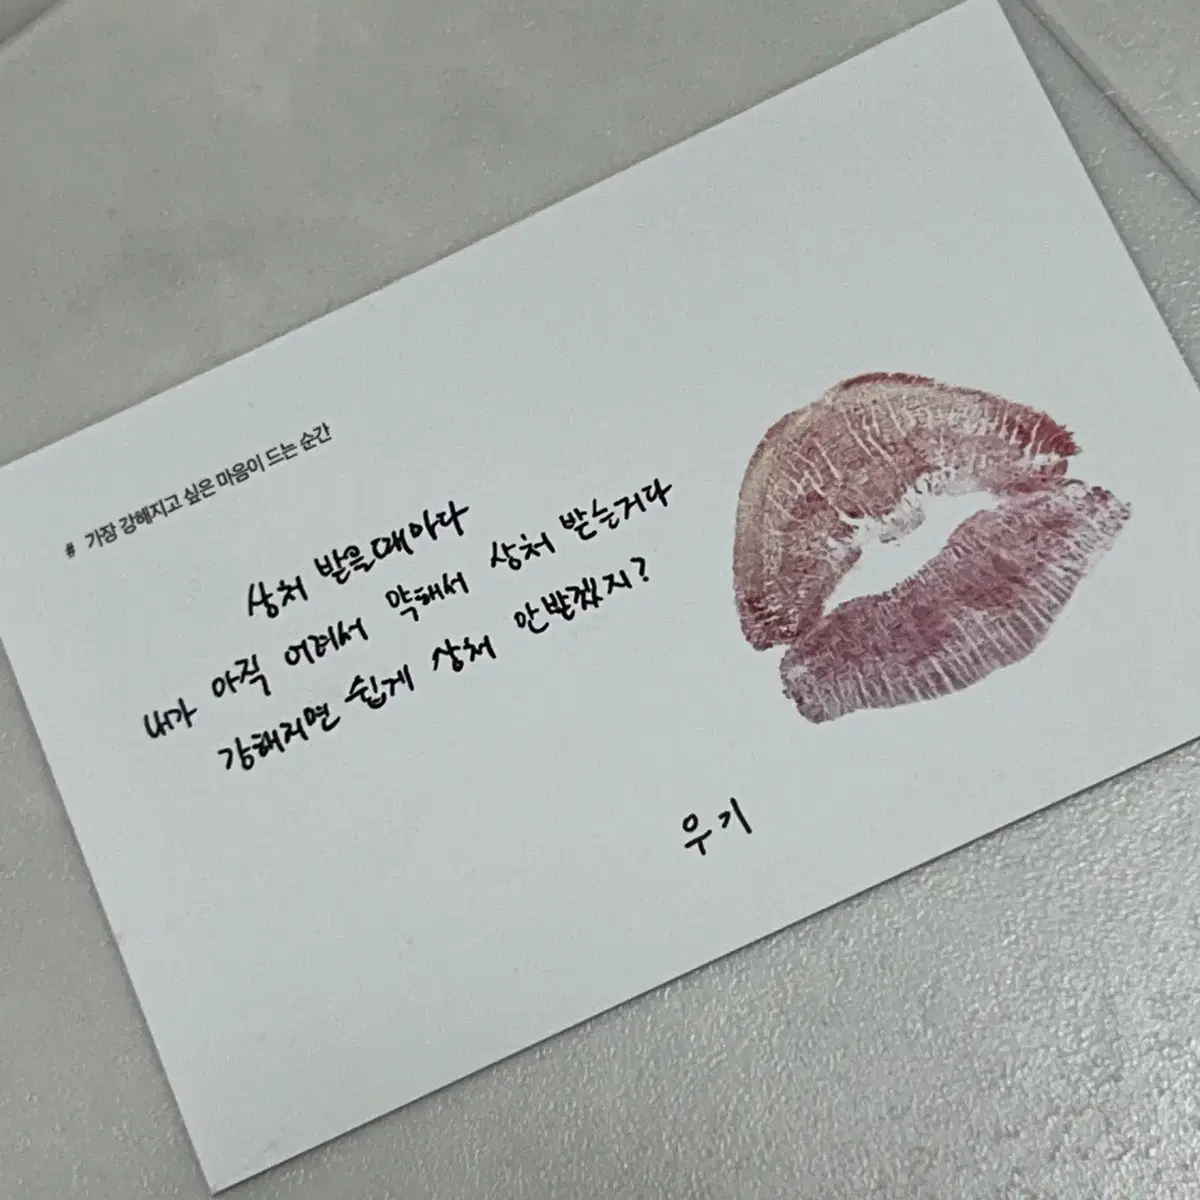 # 가장 강해지고 싶은 마음이 드는 순간
상처 받을때이다
내가 아직 어려서 약해서 상처 받는거다
강해지면 쉽게 상처 안받겠지?
우기